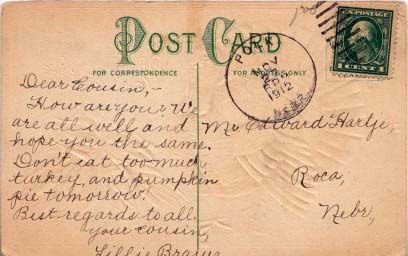 POST CARD
FOR CORRESPONDENCE
FOR ADDRESS ONLY
U.S. POSTAGE
NOV
1912
NEBR.
Dear Cousin,-
How are you? We
are all well and
hope you the same.
Don't eat too much
turkey, and pumpkin
pie tomorrow.
Best regards to all.
your cousin,
Lillie
Mr. Edward Hartje,
Roca,
Nebr,